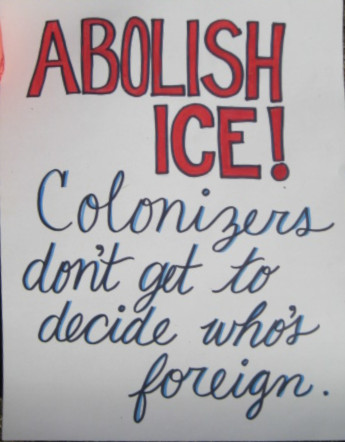 ABOLISH
ICE!
Colonizers
don't get to
decide who's
foreign.